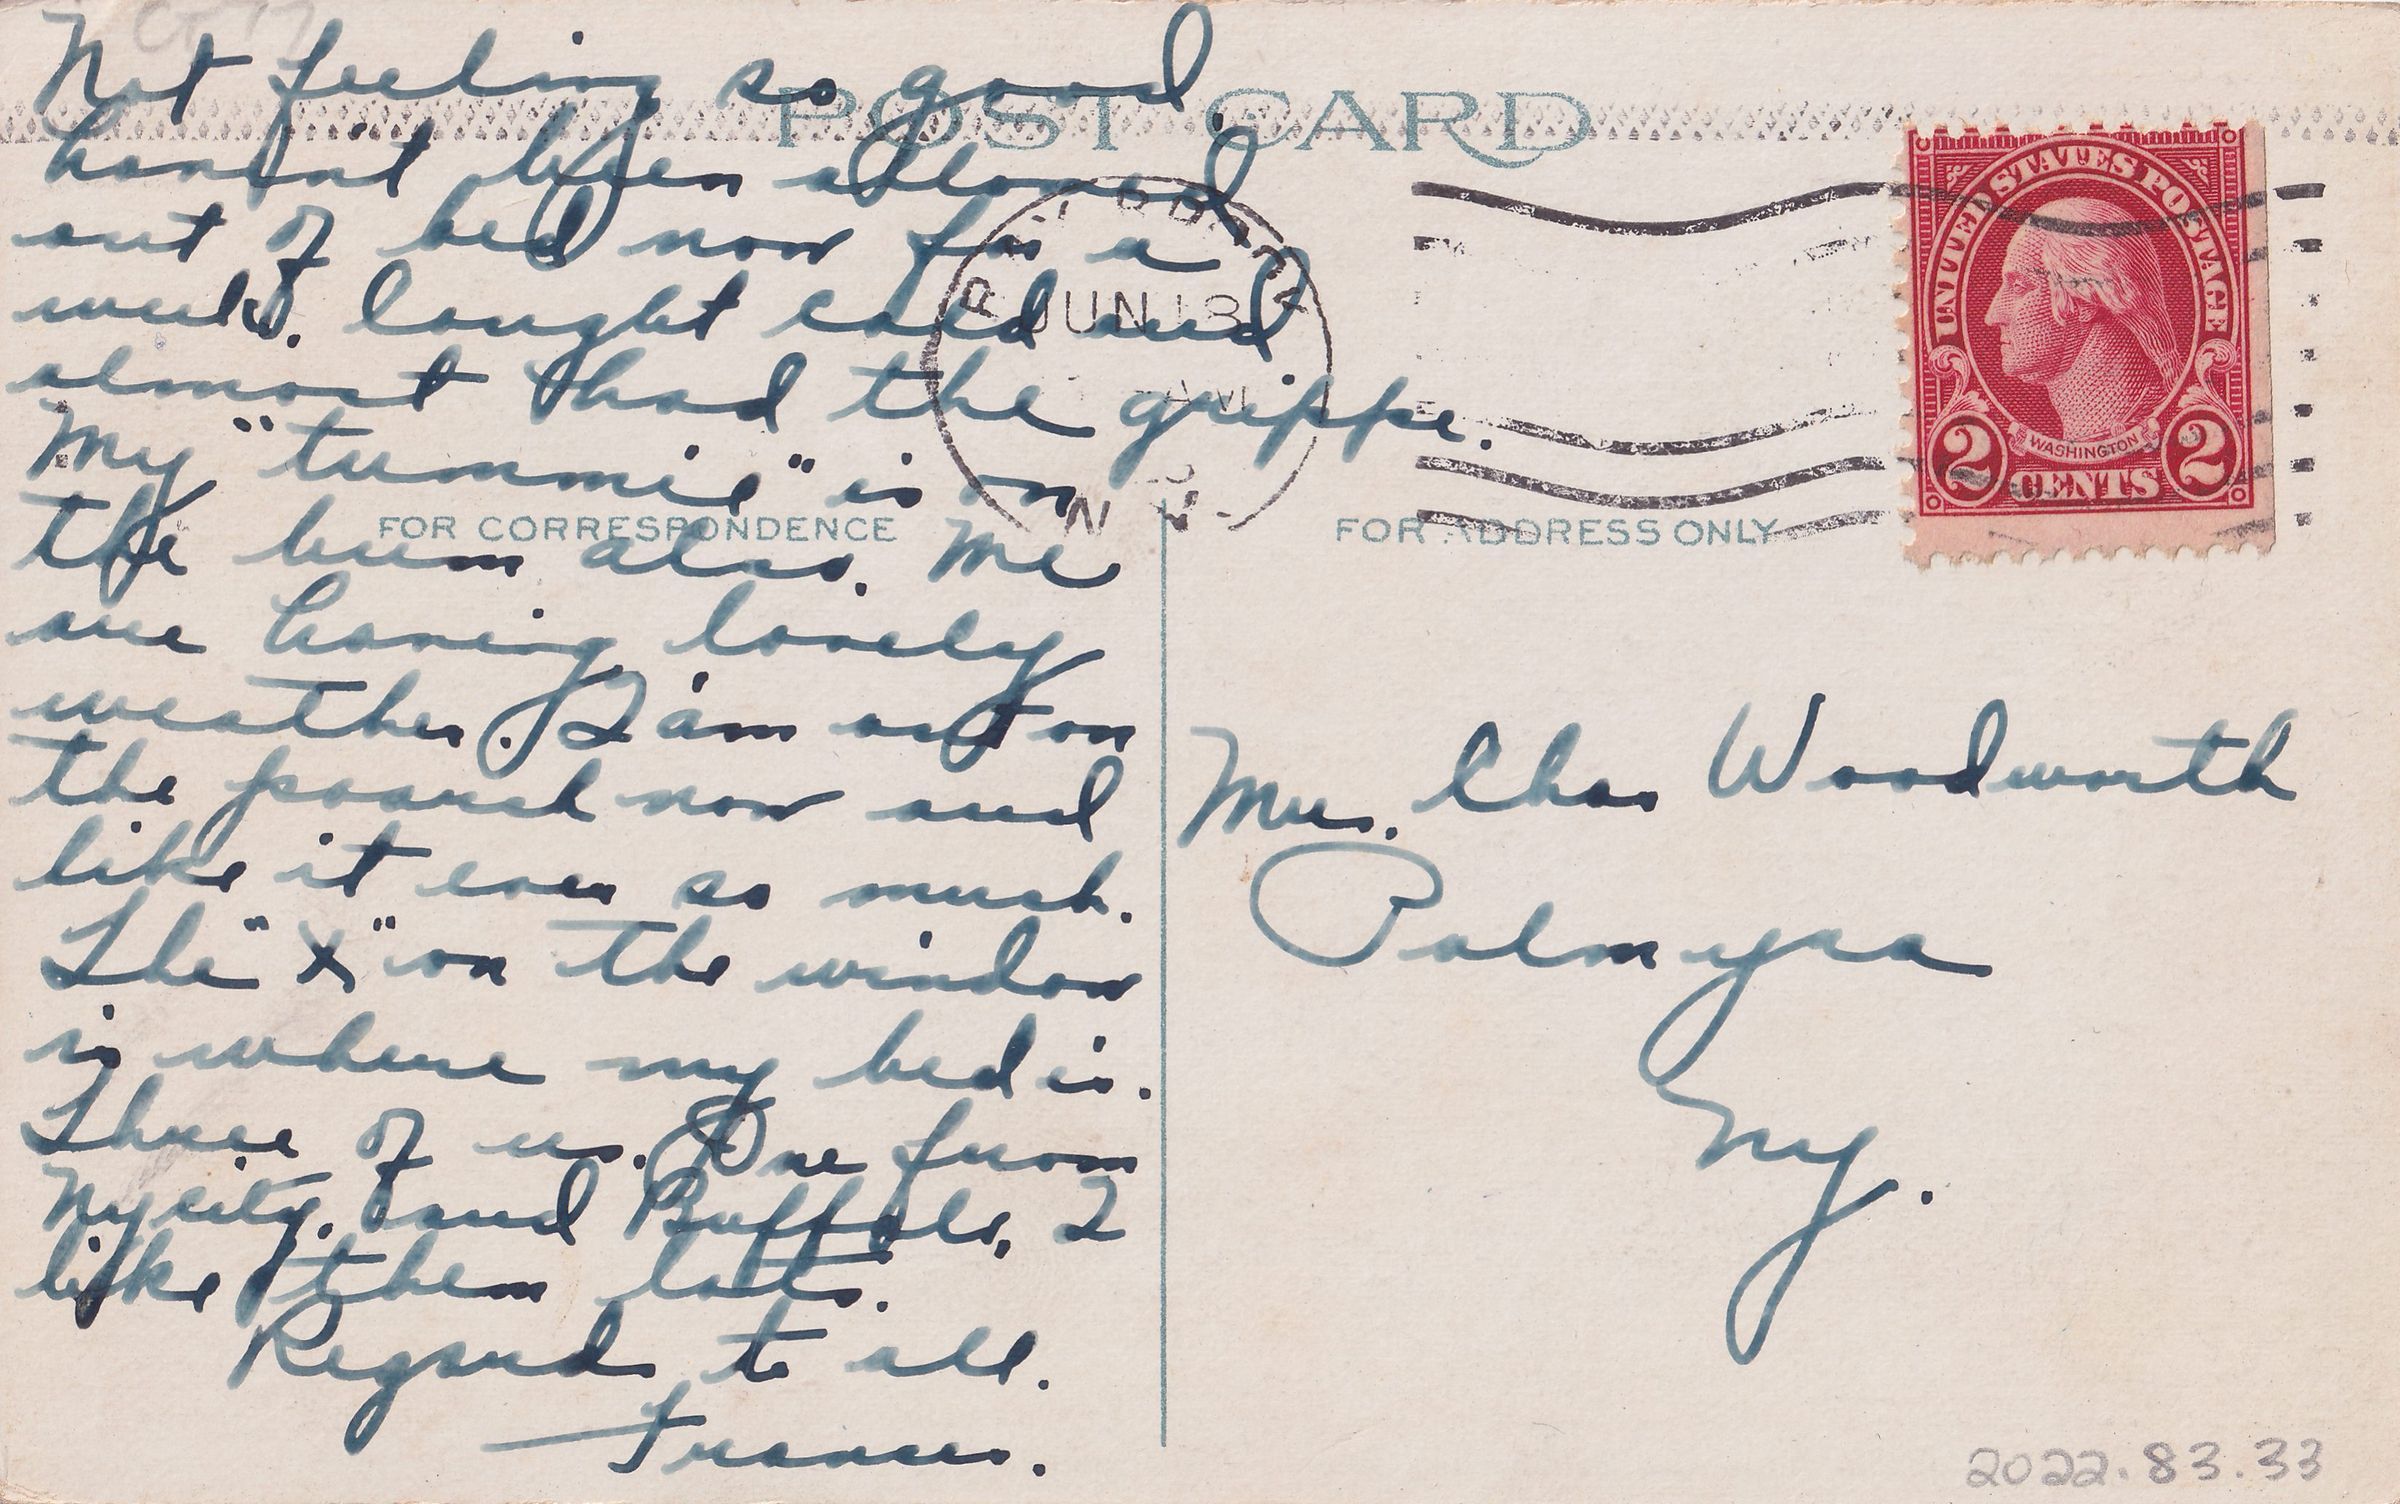 CT 77
Not feeling so good.
haven't been allowed
out of bed now for a
week. Caught cold and
almost had the grippe.
My "tummie" is on
the bum also. We
are having lovely
weather. I am out on
the poarch now and
like it ever so much.
The "X" on the window
is where my bed is.
Three of us. One from
Ny city. and Buffalo, I
like them lots.
Regards to all.
Frances.
POST CARD
FOR CORRESPONDENCE
FOR ADDRESS ONLY
JUN 13
AM
N.Y.
UNITED STATES POSTAGE
WASHINGTON
2 CENTS 2
Mrs. Chas Woodworth
Palmyra
Ny.
2022.83.33